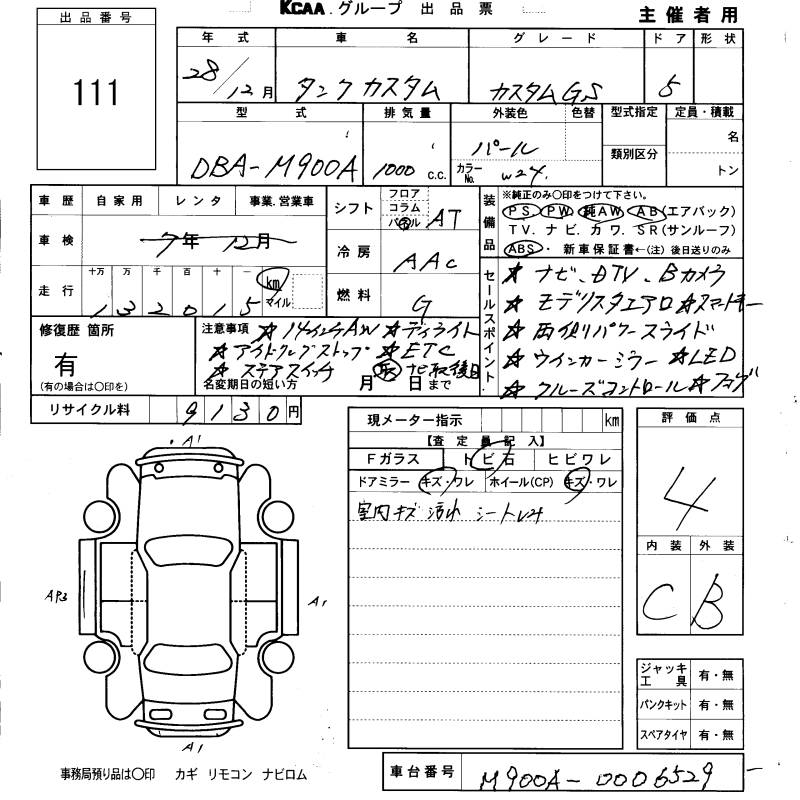 KCAA.グループ 出品票
主催者用
出品番号
111
年式 車名 グレード ドア 形状
28/12月 タンク カスタム カスタムGS 5
型式 排気量 外装色 色替 型式指定 定員・積載
DBA-M900A 1000 c.c. パール 名
カラーNo. W24. 類別区分 トン
車歴 自家用 レンタ 事業.営業車
車検 7年12月
走行 十万 万 千 百 十 一
132015 km マイル
シフト フロア コラム パネル AT
冷房 AAC
燃料 G
装備品 ※純正のみ〇印をつけて下さい。
PS PW 純AW AB(エアバック)
TV. ナビ. カワ. SR(サンルーフ)
ABS・ 新車保証書←(注)後日送りのみ
セールスポイント.
★ ナビ、DTV、Bカメラ
★ モデリスタエアロ★スマートキー
★ 両側パワースライド
★ ウインカーミラー★LED
★ クルーズコントロール★フォグ
修復歴 箇所
有
(有の場合は〇印を)
注意事項 ★14インチAW ★デイライト
★アイドルグストップ ★ETC
★ステアスイッチ ナビ取後日
名変期日の短い方 月 日まで
リサイクル料 9130円
現メーター指示 km
【査定員記入】
Fガラス トビ石 ヒビワレ
ドアミラー キズ・ワレ ホイール(CP) キズ・ワレ
室内キズ 汚れ シートレオ
評価点
4
内装 外装
C B
A1
AP3
A1
A1
ジャッキ工具 有・無
パンクキット 有・無
スペアタイヤ 有・無
事務局預り品は〇印 カギ リモコン ナビロム
車台番号 M900A-0006529